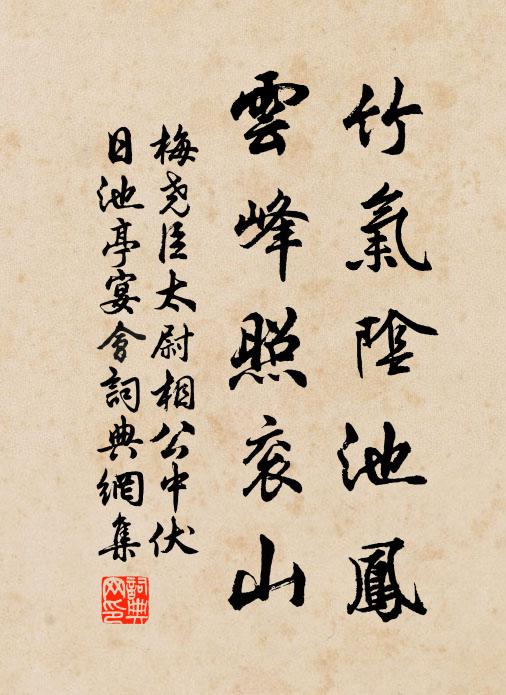 竹氣陰池鳳
雲峰照衮山
梅堯臣太尉相公中伏
日池亭宴會詞典網集
詞典網印